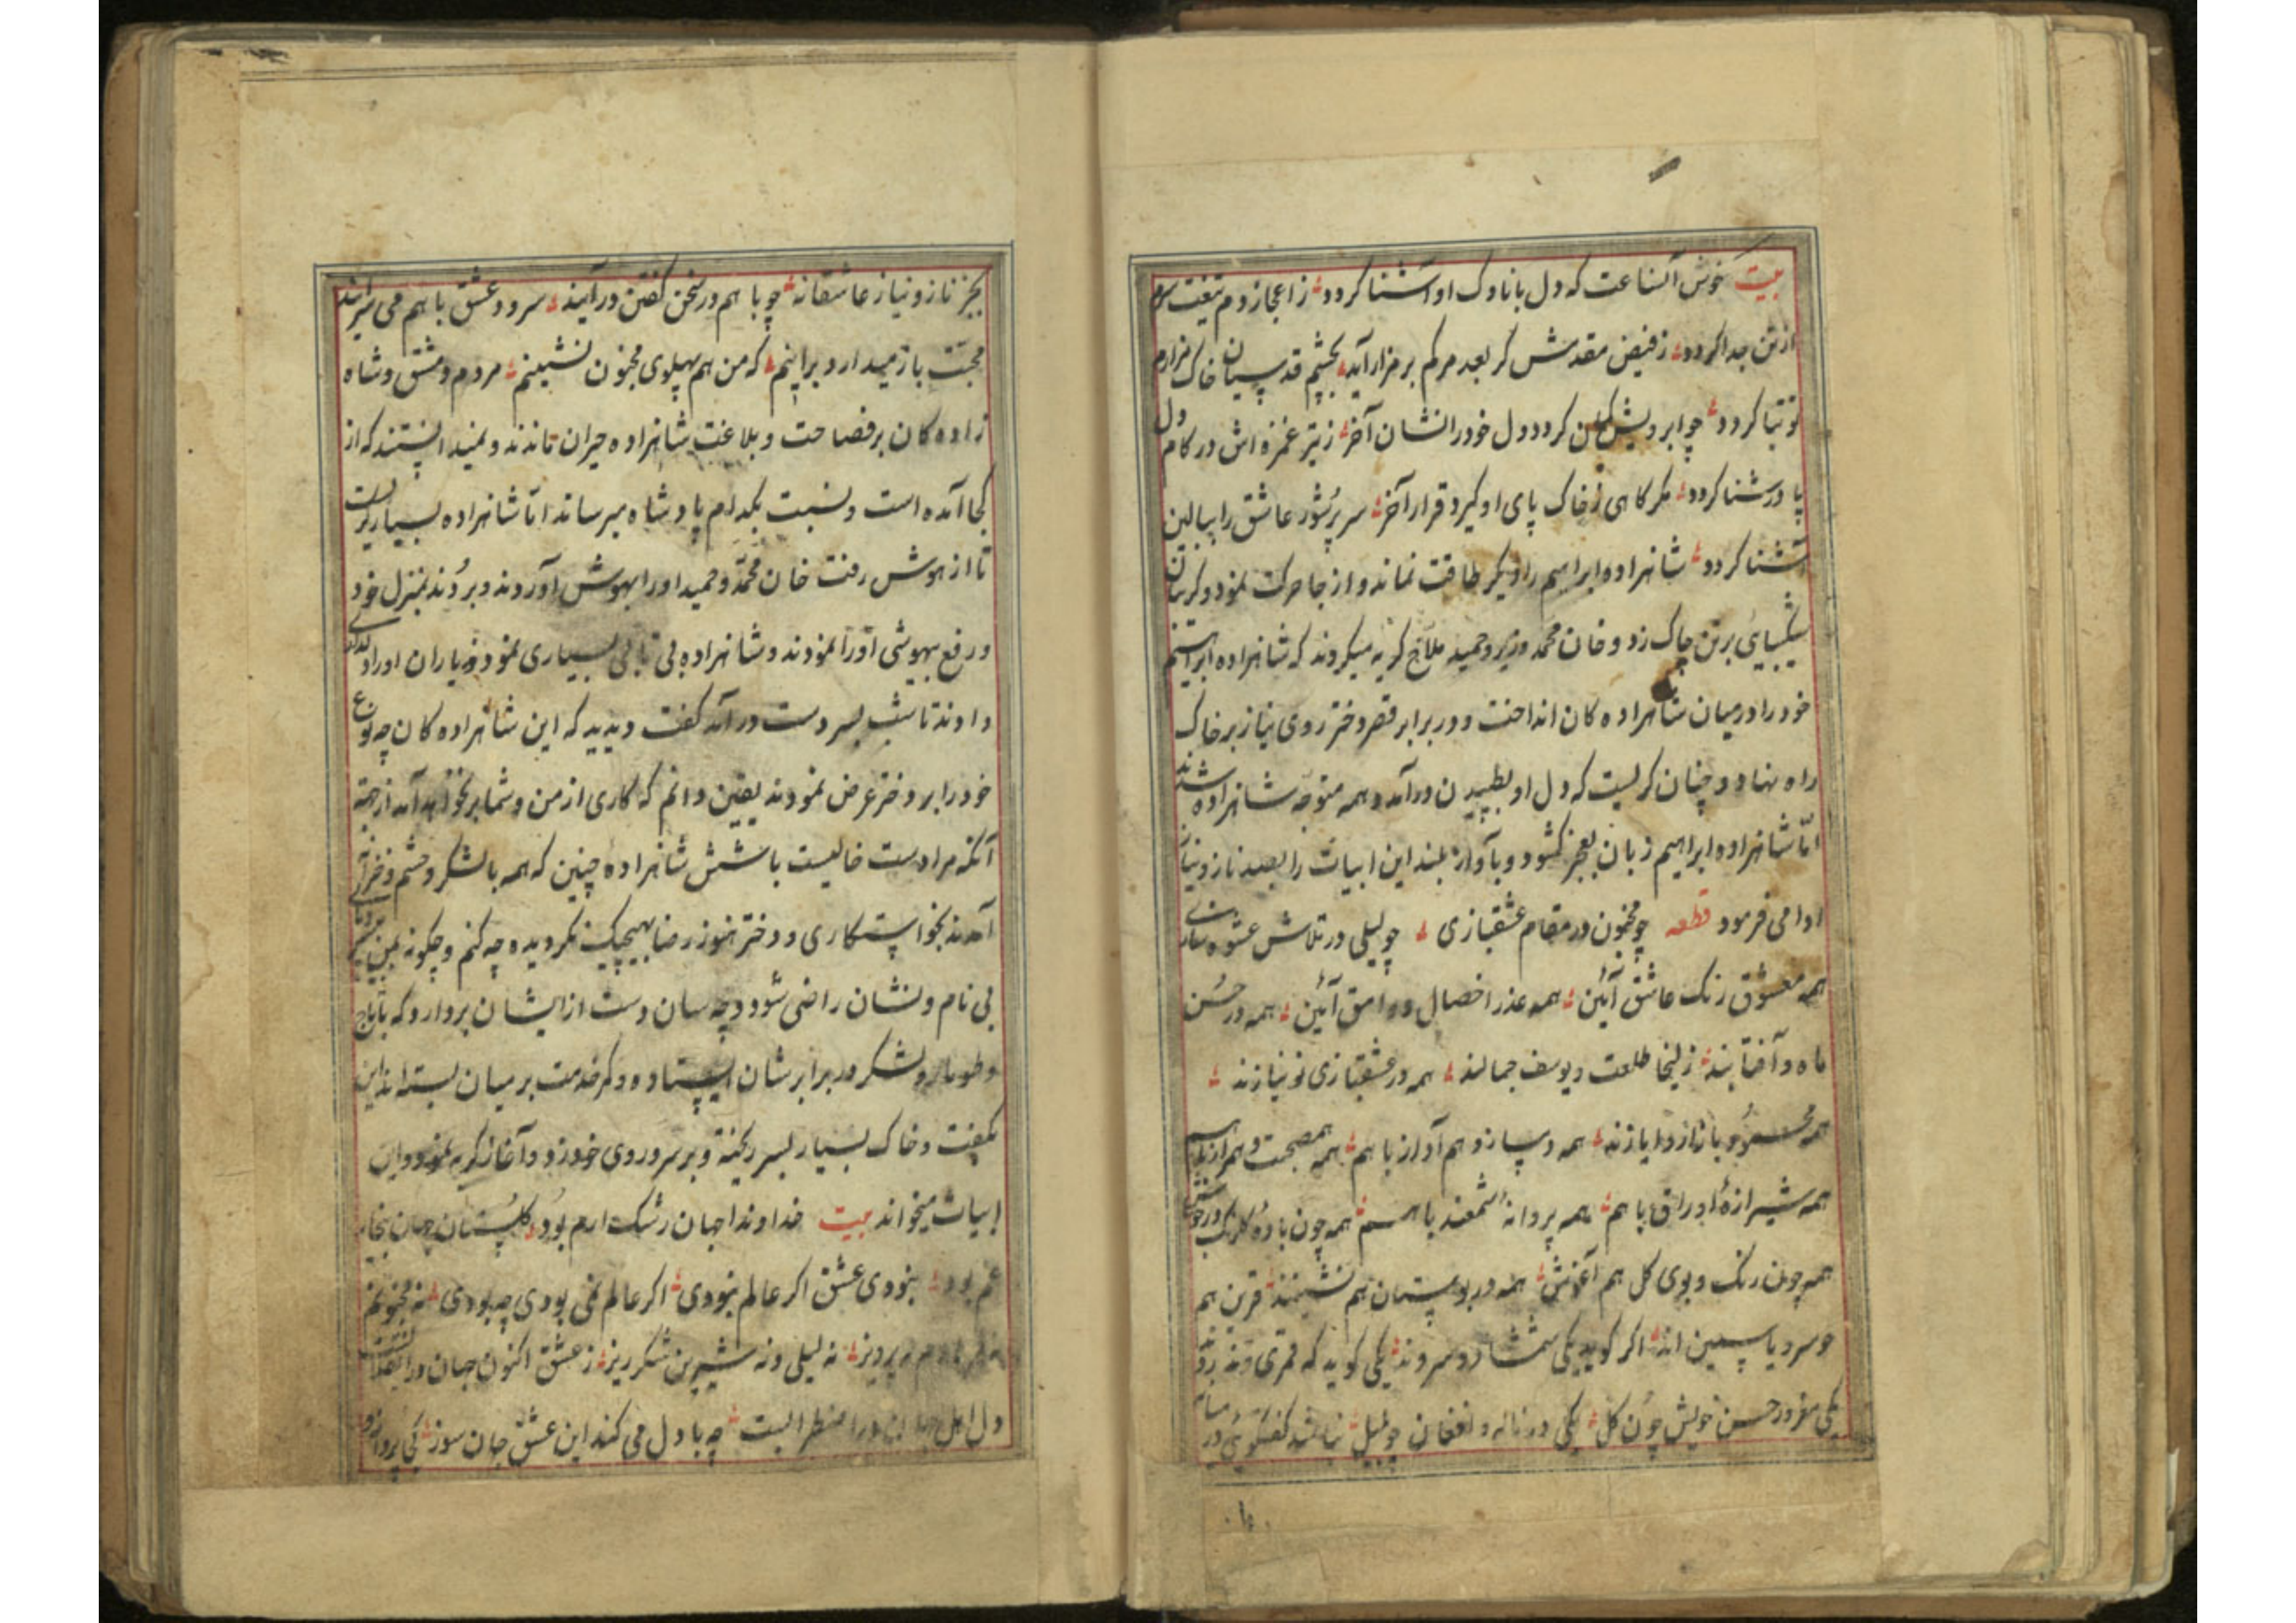 بیت خوش آنساعت که دل با ناوک او آشنا کردد ز اعجاز دم تیغت سرم
از تن جدا کردد ز فیض مقدمش کر بعد مرکم بر مزار آید بچشم قدسیان خاک مزارم
توتیا کردد چو ابرویش کمان کردد دل خود را نشان آخر ز تیر غمزه اش در کام دل
پا در شنا کردد مکر کاهی ز خاک پای او کیرد قرار آخر سر پرشور عاشق را ببالین
آشنا کردد شاهزاده ابراهیم را دیکر طاقت نماند و از جا حرکت نمود و کریبان
شکیبایی بر تن چاک زد و خان محمد وزیر و حمید ملاح کریه میکردند که شاهزاده ابراهیم
خود را در میان شاهزاده کان انداخت و در برابر قصر دختر روی نیاز بر خاک
راه نهاد و چنان کریست که دل او بطپیدن درآمد و همه متوجه شاهزاده شدند
امّا شاهزاده ابراهیم زبان بعجز کشود و بآواز بلند این ابیات را بصد ناز و نیاز
ادا می فرمود قطعه چو مجنون در مقام عشقبازی چو لیلی در تلاش عشوه سازی
همه معشوق رنک عاشق آئین همه عذرا خصال و وامق آئین همه در حسن
ماه و آفتابند زلیخا طلعت و یوسف جمالند همه در عشقبازی نو نیازند
همه محمود با ناز و ایازند همه دمساز و هم آواز با هم همه همصحبت و همراز با هم
همه شیرازهٔ اوراق با هم همه پروانهٔ شمعند با هم همه چون بادهٔ کلرنک در جوش
همه چون رنک و بوی کل هم آغوش همه در بوستان هم نشینند قرین هم
چو سرو و یاسمین اند اکر کوید یکی شمشاد و سروند یکی کوید که قمری و تذروند
یکی مغرور حسن خویش چون کل یکی در ناله و افغان چو بلبل نباشد کفتکوئی در میانه
بجز ناز و نیاز عاشقانه چو با هم در سخن کفتن درآیند سرود عشق با هم می سرایند
محبّت باز میدارد براینم که من هم پهلوی مجنون نشینم مردم دمشق و شاه
زاده کان بر فصاحت و بلاغت شاهزاده حیران ماندند و نمیدانستند که از
کجا آمده است و نسبت بکدام پادشاه میرساند امّا شاهزاده بسیار کریست
تا از هوش رفت خان محمّد و حمید او را بهوش آوردند و بردند بمنزل خود
و رفع بیهوشی او را نمودند و شاهزاده بی تابی بسیاری نمود و یاران او را دلداری
دادند تا شب بسر دست درآمد کفت دیدید که این شاهزاده کان چه نوع
خود را بر دختر عرض نمودند یقین دانم که کاری از من و شما بر نخواهد آمد از جهة
آنکه مرا دست خالیست با شش شاهزاده چنین که همه با لشکر و حشم و خزانه
آمدند بخواستکاری و دختر هنوز رضا بهیچیک نکردیده چه کنم و چکونه بمن
بی نام و نشان راضی شود و چه سان دست از ایشان بردارد که با تاج
و طومار و لشکر در برابر شان ایستاده و کمر خدمت بر میان بسته اند این
بکفت و خاک بسیار بسر ریخته و بر سر و روی خود زد و آغاز کریه نمود و این
ابیات میخواند بیت خداوندا جهان رشک ارم بود کلستان جهان بیخار
غم بود نبودی عشق اکر عالم نبودی اکر عالم نمی بودی چه بودی نه مجنون
پرویز نه لیلی و نه شیرین شکر ریز ز عشق اکنون جهان در انقلابست
دل اهل جهان در اضطرابست چه با دل می کند این عشق جان سوز